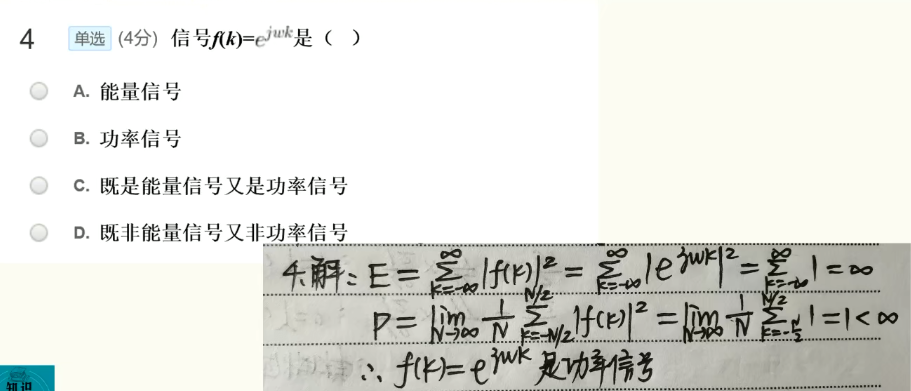 4 单选 (4分) 信号f(k)=e^{jwk}是（ ）
A. 能量信号
B. 功率信号
C. 既是能量信号又是功率信号
D. 既非能量信号又非功率信号
4.解: E = \sum_{k=-\infty}^{\infty} |f(k)|^2 = \sum_{k=-\infty}^{\infty} |e^{jwk}|^2 = \sum_{k=-\infty}^{\infty} 1 = ∞
P = \lim_{N→∞} \frac{1}{N} \sum_{k=-N/2}^{N/2} |f(k)|^2 = \lim_{N→∞} \frac{1}{N} \sum_{k=-\frac{N}{2}}^{N/2} 1 = 1 < ∞
∴ f(k) = e^{jwk} 是功率信号
知识